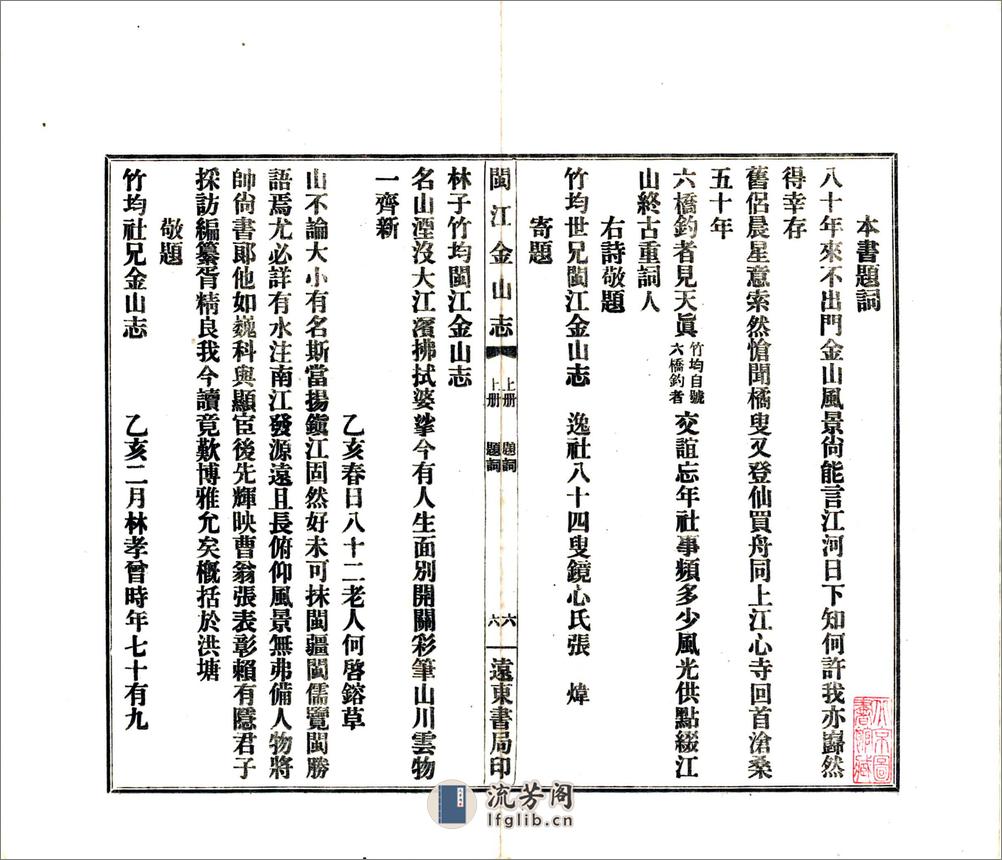 本書題詞
八十年來不出門金山風景尙能言江河日下知何許我亦巋然
得幸存
舊侶晨星意索然愴聞橘叟又登仙買舟同上江心寺回首滄桑
五十年
六橋釣者見天眞竹均自號六橋釣者交誼忘年社事頻多少風光供點綴江
山終古重詞人
右詩敬題
竹均世兄閩江金山志 逸社八十四叟鏡心氏張 煒
寄題
閩江金山志 上册 題詞 六 遠東書局印
上册 題詞 六
林子竹均閩江金山志
名山湮沒大江濱拂拭婆挲今有人生面別開關彩筆山川雲物
一齊新
乙亥春日八十二老人何啓鎔草
山不論大小有名斯當揚鎭江固然好未可抹閩疆閩儒覽閩勝
語焉尤必詳有水注南江發源遠且長俯仰風景無弗備人物將
帥尙書郞他如巍科與顯宦後先輝映曹翁張表彰賴有隱君子
採訪編纂胥精良我今讀竟歎博雅允矣槪括於洪塘
敬題
竹均社兄金山志 乙亥二月林孝曾時年七十有九
流芳阁
lfglib.cn